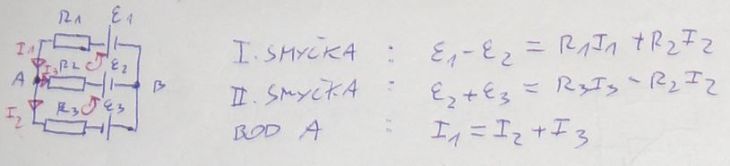 R1 ε1
I1
A I3 R2 ε2 B
I2 R3 ε3
I. SMYČKA : ε1-ε2 = R1I1 + R2I2
II. SMYČKA : ε2+ε3 = R3I3 - R2I2
BOD A : I1 = I2 + I3